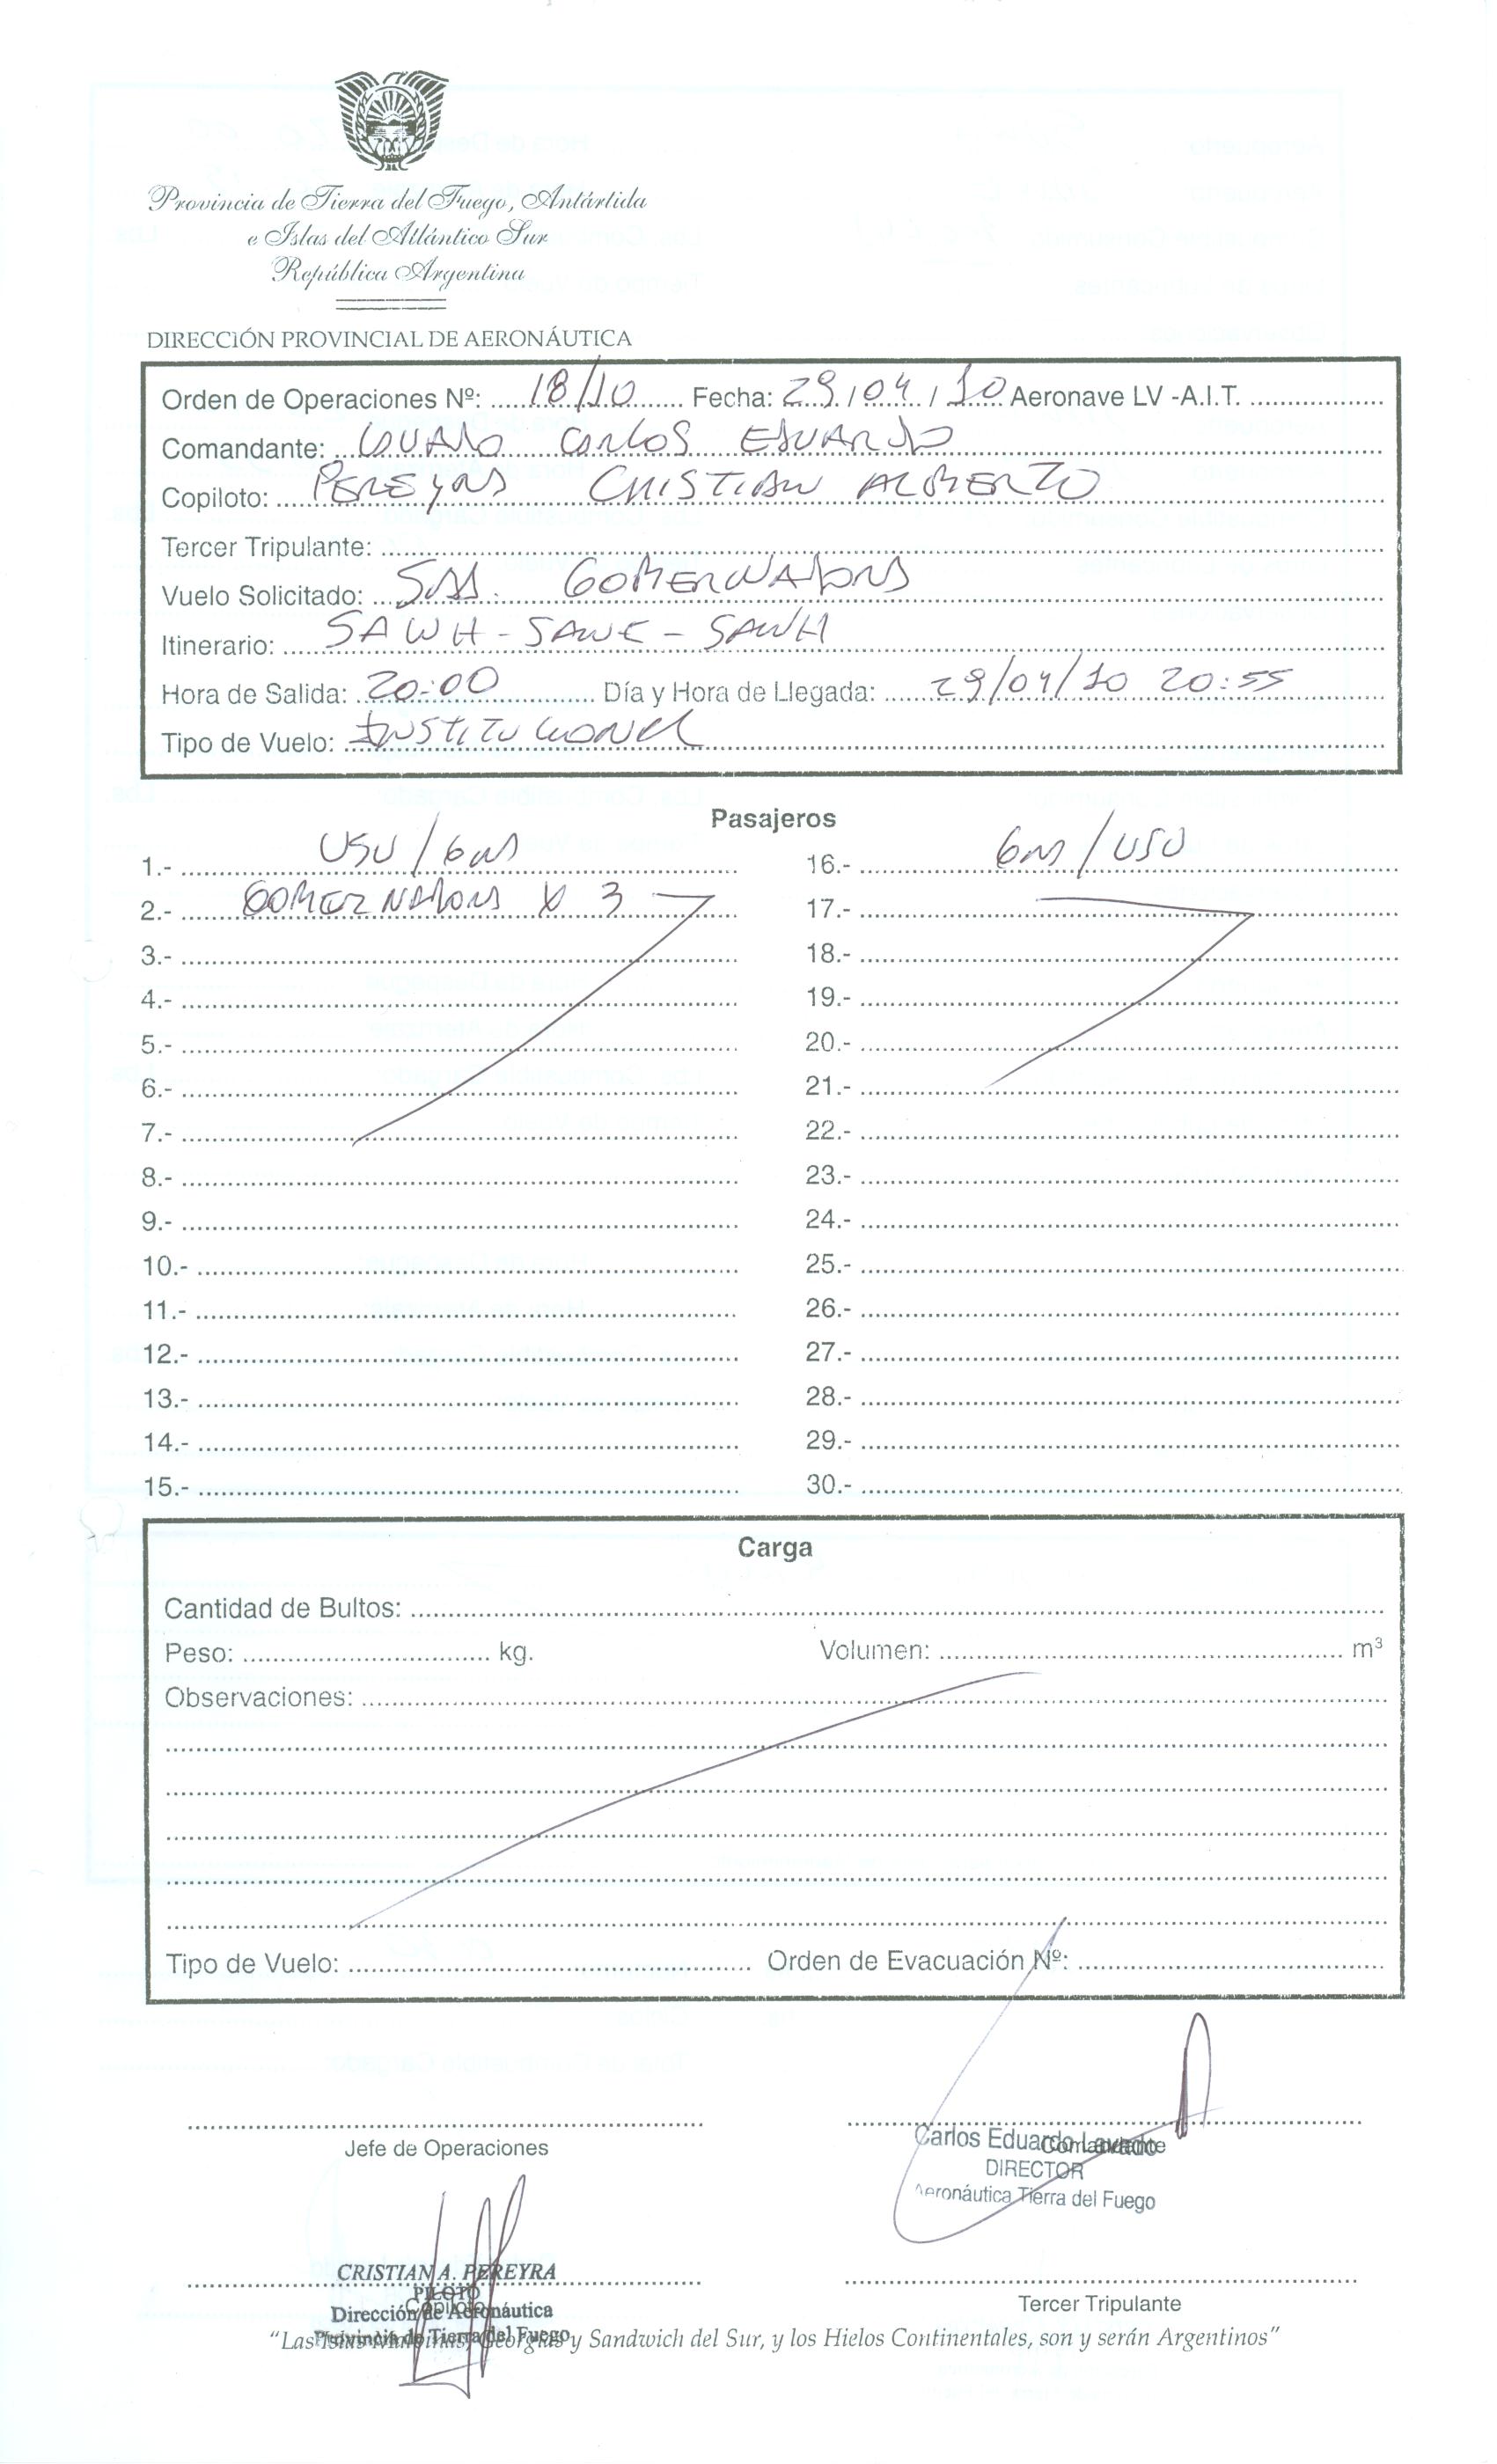 Provincia de Tierra del Fuego, Antártida
e Islas del Atlántico Sur
República Argentina
DIRECCIÓN PROVINCIAL DE AERONÁUTICA
Orden de Operaciones Nº: 18/10 Fecha: 29/04/10 Aeronave LV -A.I.T.
Comandante: LAVADO CARLOS EDUARDO
Copiloto: PEREYRA CRISTIAN ALBERTO
Tercer Tripulante:
Vuelo Solicitado: SRA. GOBERNADORA
Itinerario: SAWH - SAWE - SAWH
Hora de Salida: 20:00 Día y Hora de Llegada: 29/04/10 20:55
Tipo de Vuelo: INSTITUCIONAL
Pasajeros
1.- USU/GRA
16.- GRA/USU
2.- GOBERNADORA X 3
17.-
3.-
18.-
4.-
19.-
5.-
20.-
6.-
21.-
7.-
22.-
8.-
23.-
9.-
24.-
10.-
25.-
11.-
26.-
12.-
27.-
13.-
28.-
14.-
29.-
15.-
30.-
Carga
Cantidad de Bultos:
Peso: kg. Volumen: m³
Observaciones:
Tipo de Vuelo: Orden de Evacuación Nº:
Jefe de Operaciones
Comandante
Carlos Eduardo Lavado
DIRECTOR
Aeronáutica Tierra del Fuego
CRISTIAN A. PEREYRA
PILOTO
Copiloto
Dirección de Aeronáutica
Provincia de Tierra del Fuego
Tercer Tripulante
"Las Islas Malvinas, Georgias y Sandwich del Sur, y los Hielos Continentales, son y serán Argentinos"